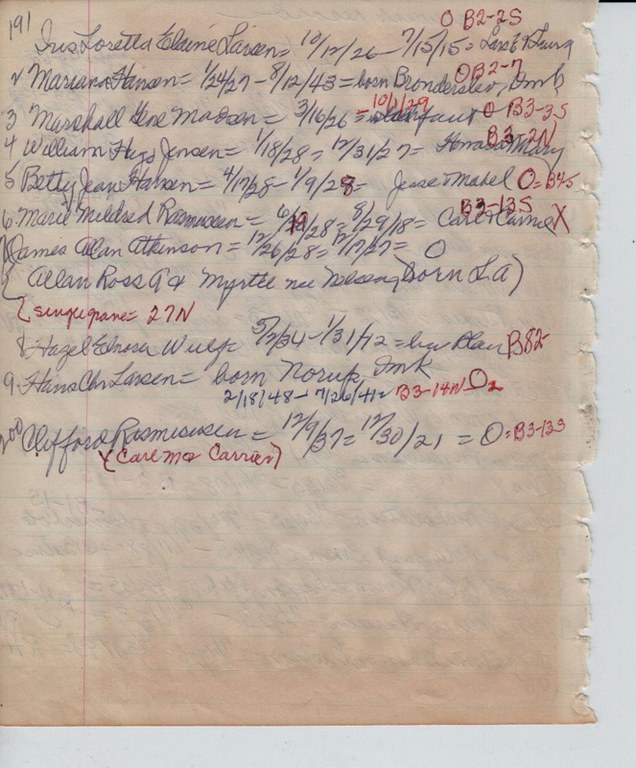 191 O B2-2S
Iris Loretta Elaine Larsen = 10/12/26 - 7/15/15 =
2 Mariane Hansen = 1/24/27 - 8/12/43 = born Bronderslev, Dmk O B2-7
3 Marshall Gene Madsen = 3/16/26 = 10/1/29 O B3-3S
4 William Hugo Jensen = 1/18/28 = 12/31/27 = & Mary B3-2N
5 Betty Jean Hansen = 4/17/28 - 1/9/28 = Jesse & Mabel O = B4-5
6 Marie Mildred Rasmussen = 6/19/28 = 8/29/18 = Carl & B3-13S X
7 James Alan Atkinson = 12/26/28 = 12/17/27 = O
{ Allan Ross A & Myrtle nee Nelsen (born LA)
{ single grave = 27N
8 Hazel Elnora Wulf = 5/2/34 - 1/31/12 = Blair B82
9 Hans Chr Larsen = born Norup, Dmk
2/18/48 - 7/26/41 = B3-14N O2
200 Clifford Rasmussen = 12/9/37 = 12/30/21 = O = B3-13S
(Carl M & Carrier)